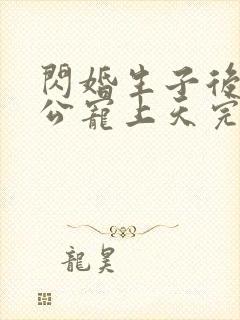 閃婚生子後
公寵上天完
龍昊